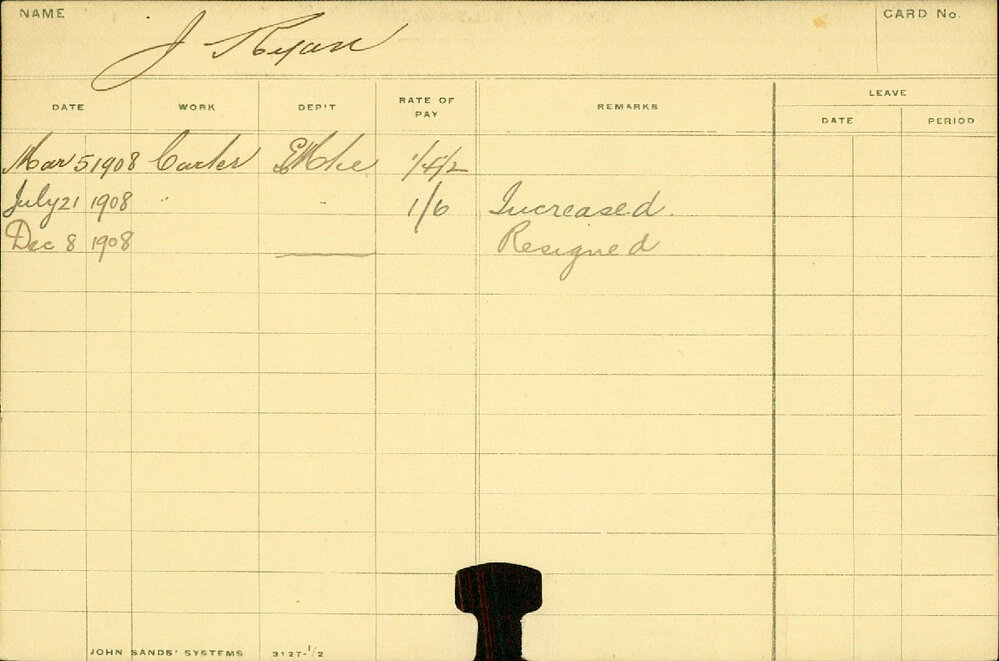 NAME J Ryan CARD No.
LEAVE
DATE WORK DEP'T RATE OF PAY REMARKS DATE PERIOD
Mar 5 1908 Carter 1/4/2
July 21 1908 " " 1/6 Increased.
Dec 8 1908 Resigned
JOHN SANDS' SYSTEMS 3127-1/2